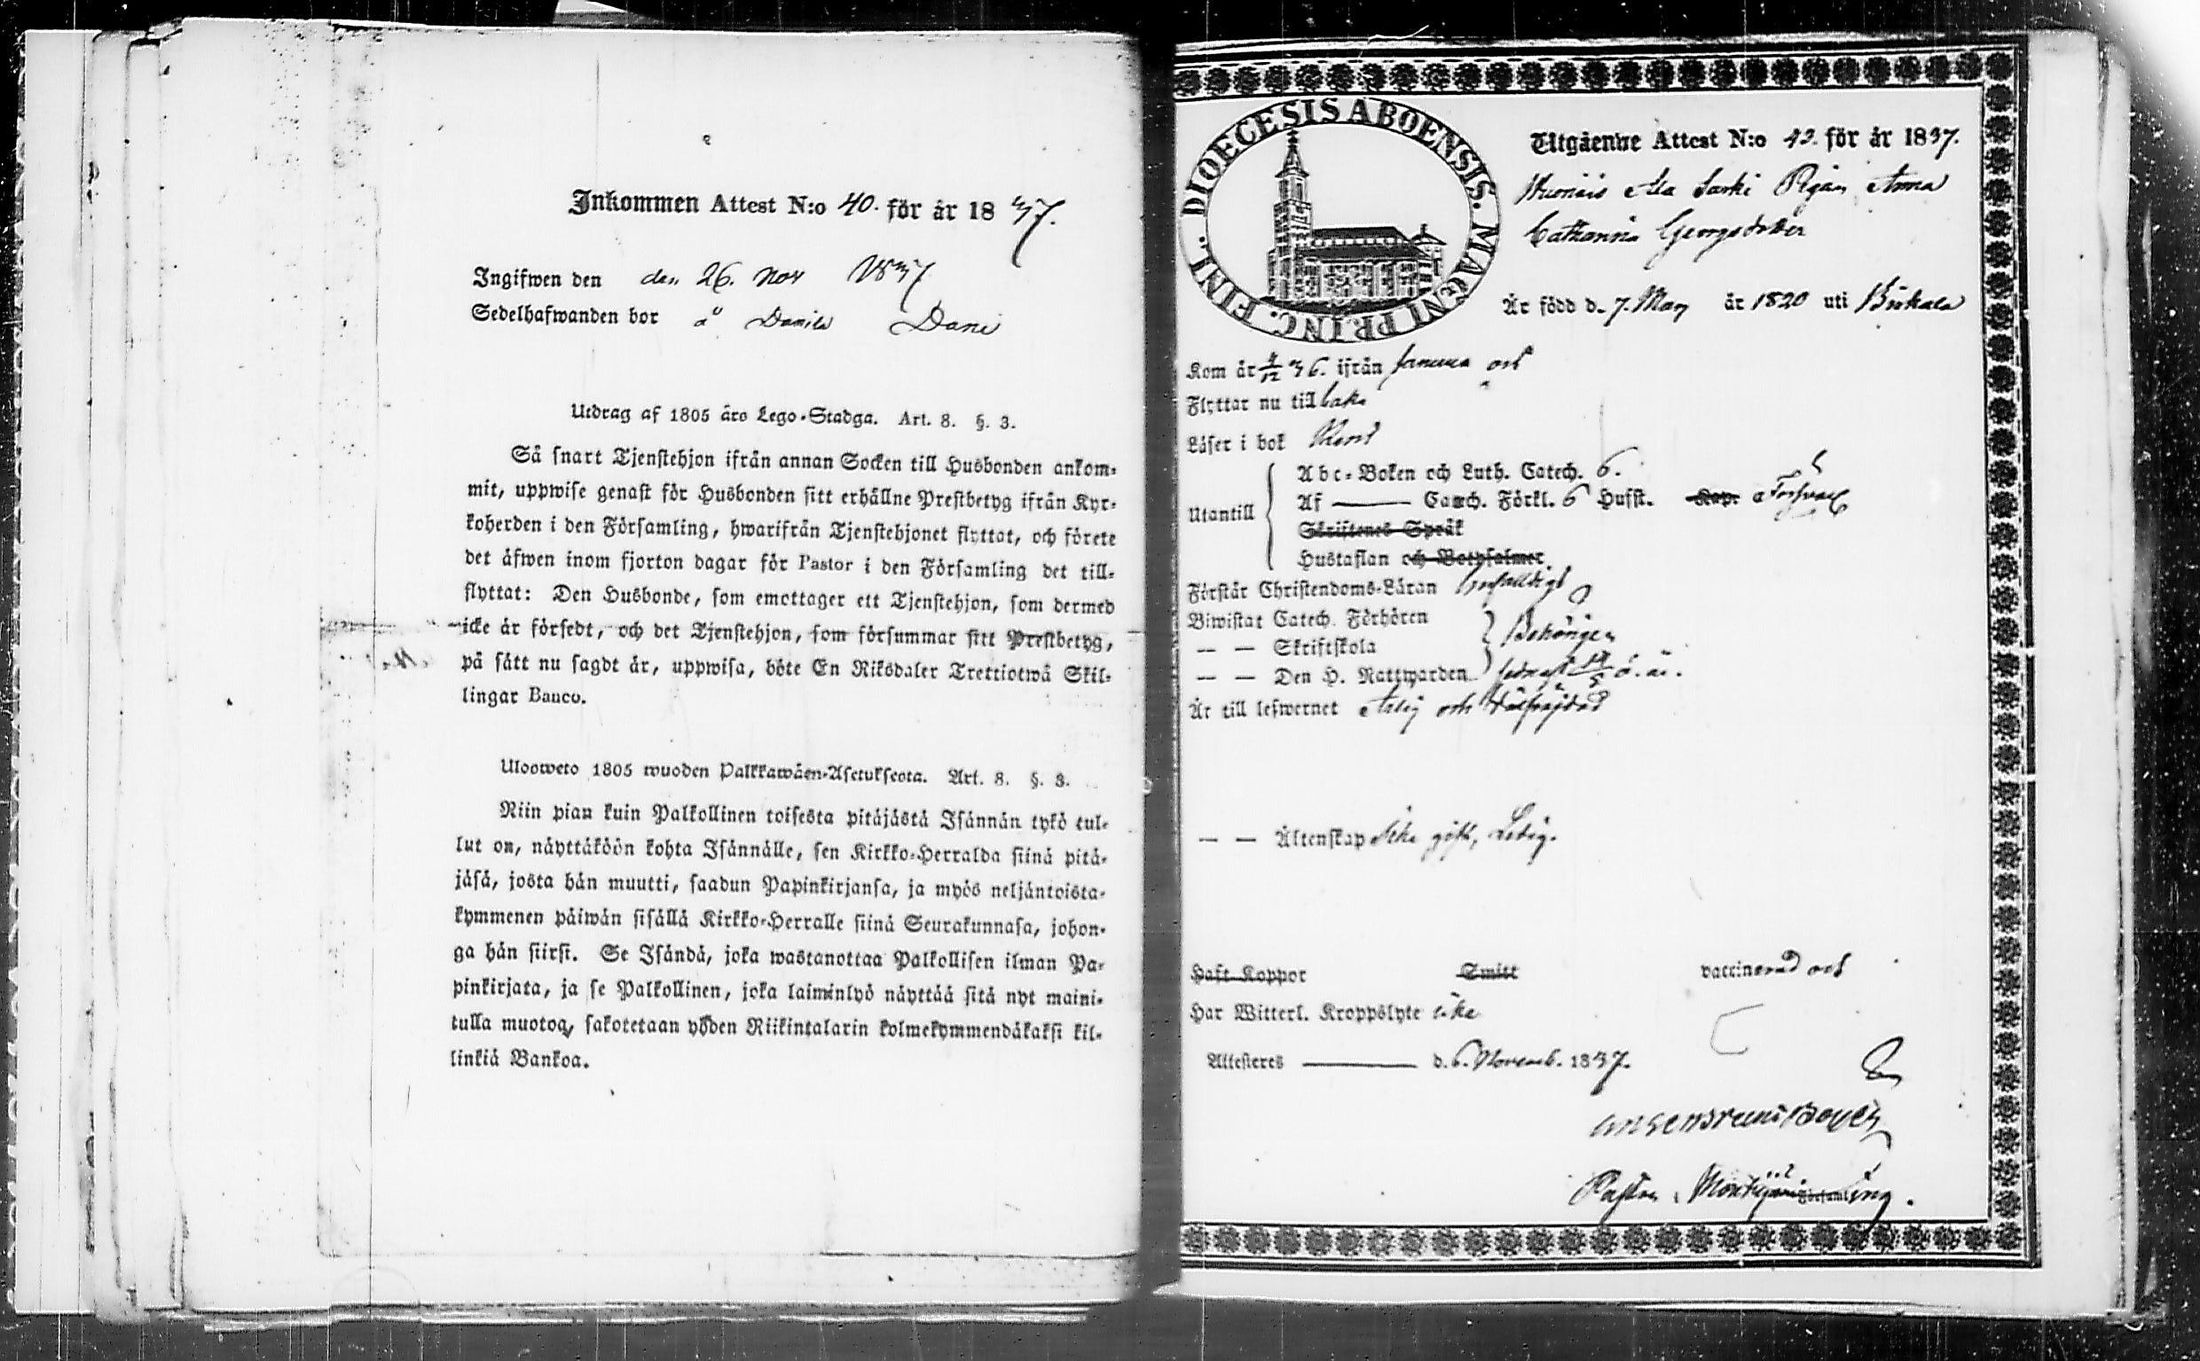 Inkommen Attest N:o 40. för år 1837.
Ingifwen den den 26. Nov 1837
Sedelhafwanden bor å Danila Dani
Utdrag af 1805 års Lego-Stadga. Art. 8. §. 3.
Så snart Tjenstehjon ifrån annan Socken till Husbonden ankom-
mit, uppwise genast för Husbonden sitt erhållne Prestbetyg ifrån Kyr-
koherden i den Församling, hwarifrån Tjenstehjonet flyttat, och förete
det äfwen inom fjorton dagar för Pastor i den Församling det till-
flyttat: Den Husbonde, som emottager ett Tjenstehjon, som dermed
icke är försedt, och det Tjenstehjon, som försummar sitt Prestbetyg,
på sätt nu sagdt är, uppwisa, böte En Riksdaler Trettiotwå Skil-
lingar Banco.
Ulosweto 1805 wuoden Palkkawäen-Asetuksesta. Art. 8. §. 3.
Niin pian kuin Palkollinen toisesta pitäjästä Isännän tykö tul-
lut on, näyttäköön kohta Isännälle, sen Kirkko-Herralda siinä pitä-
jäsä, josta hän muutti, saadun Papinkirjansa, ja myös neljäntoista-
kymmenen päiwän sisällä Kirkko-Herralle siinä Seurakunnasa, johon-
ga hän siirsi. Se Isändä, joka wastanottaa Palkollisen ilman Pa-
pinkirjata, ja se Palkollinen, joka laiminlyö näyttää sitä nyt maini-
tulla muotoa, sakotetaan yhden Riikintalarin kolmekymmendäkaksi kil-
linkiä Bankoa.
DIOECESIS ABOENSIS. MAGNI PRINC. FINL.
Utgående Attest N:o 43. för år 1837.
Ala Sarki Pigan Anna
Catharina Georgsdotter
Är född d. 7. May år 1820 uti Birkala
Kom år 4/12 36. ifrån samma ort
Flyttar nu tillbaka
Läser i bok
Utantill
Abc-Boken och Luth. Catech. 6.
Af Catech. Förkl. 6 Husst. Kap. Försvar
Skriftenes Språk
Hustaflan och Botpsalmer
Förstår Christendoms-Läran Enfaldigt
Biwistat Catech. Förhören
— — Skriftskola Behörigen
— — Den H. Nattwarden senast ö. å.
Är till lefwernet Ärlig och Wälfräjdad
— — Äktenskap Icke gift, Ledig.
Haft Koppor Smitt vaccinerad och
Har Witterl. Kroppslyte icke
Attesteres d. 6. Novemb. 1837.
Pastor i